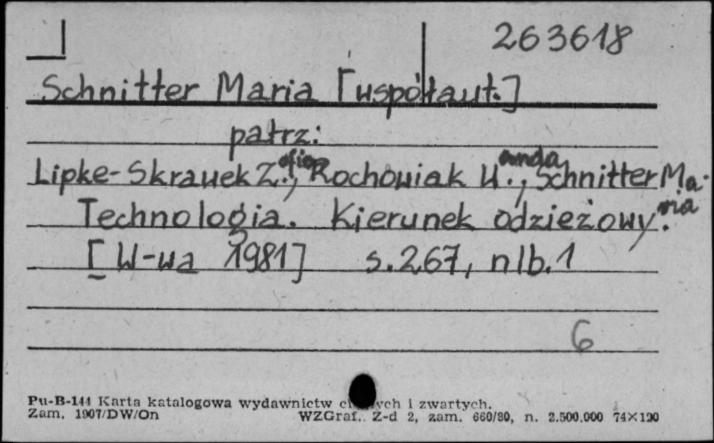 263618
Schnitter Maria [współaut.]
patrz:
Lipke-Skrawek Z.ofia, Rochowiak W.anda, Schnitter Ma-
ria
Technologia. Kierunek odzieżowy.
[W-wa 1981] s. 267, nlb. 1
6
Pu-B-144 Karta katalogowa wydawnictw i zwartych.
Zam. 1907/DW/On WZGraf. Z-d 2, zam. 660/80, n. 2.500.000 74×120